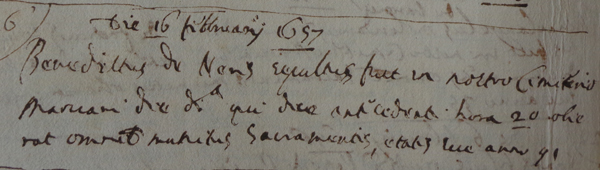 6
Die 16 februarij 1657
Benedictus de Nens sepultus fuit in nostro Cimiterio
die dᵃ qui die antecedenti hora 20 obie
rat omnibus munitus Sacramentis, etatis sue anno 91